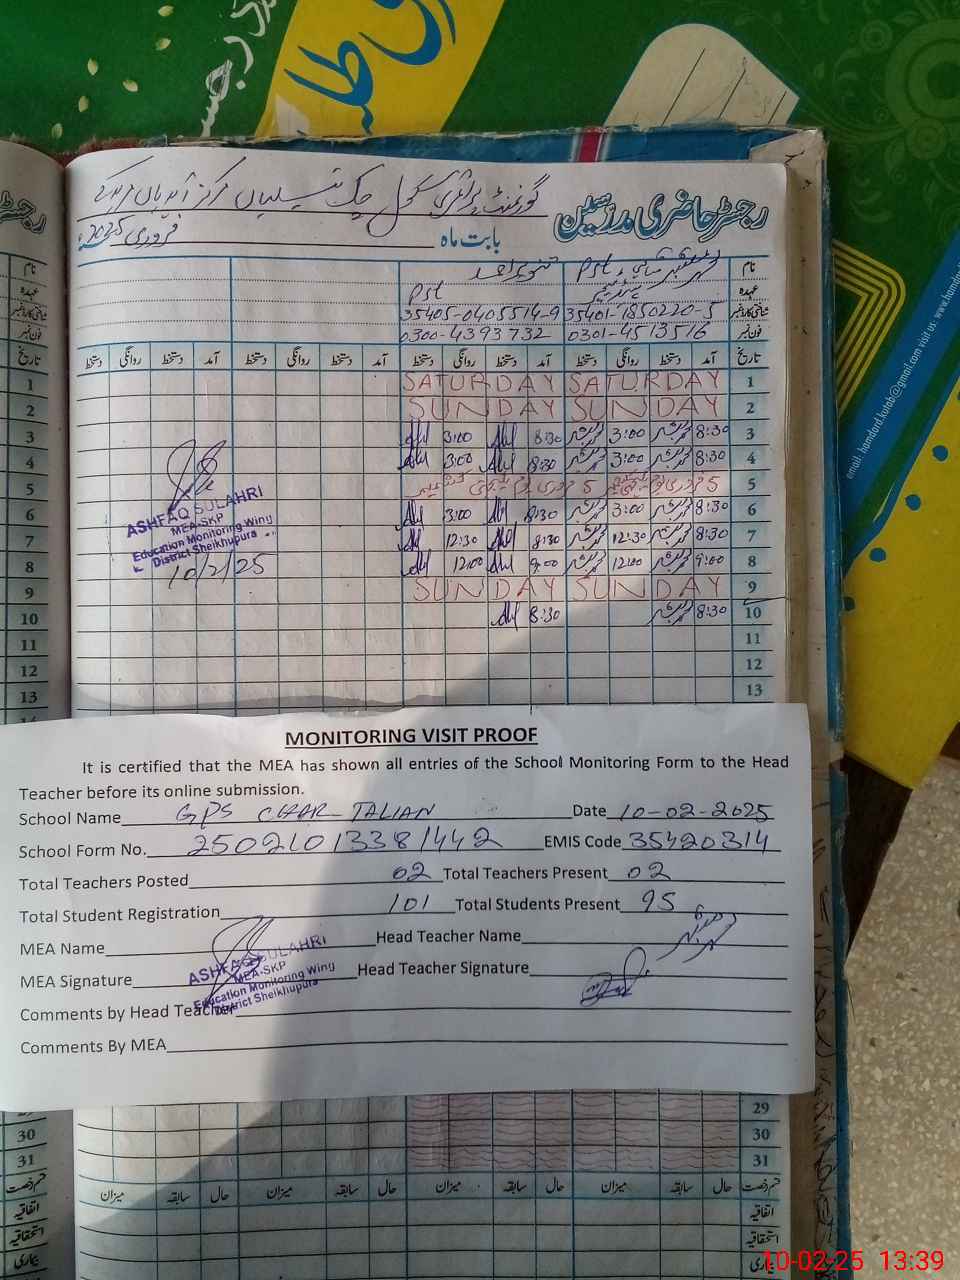 رجسٹر حاضری مدرسین
گورنمنٹ پرائمری سکول چک تیلیاں مرکز
بابت ماہ فروری 2025ء
نام
عہدہ Pst Pst
شناختی کارڈ نمبر 35401-1850220-5 35405-0405514-9
فون نمبر 0301-4513516 0300-4393732
تاریخ آمد دستخط روانگی دستخط آمد دستخط روانگی دستخط آمد دستخط روانگی دستخط آمد دستخط روانگی دستخط
1 SATURDAY SATURDAY
2 SUNDAY SUNDAY
3 8:30 3:00 8:30 3:00
4 8:30 3:00 8:30 3:00
5
6 8:30 3:00 8:30 3:00
7 8:30 12:30 8:30 12:30
8 9:00 12:00 9:00 12:00
9 SUNDAY SUNDAY
10 8:30 8:30
11
12
13
ASHFAQ SULAHRI
MEA-SKP
Education Monitoring Wing
District Sheikhupura
10/2/25
MONITORING VISIT PROOF
It is certified that the MEA has shown all entries of the School Monitoring Form to the Head
Teacher before its online submission.
School Name GPS CHAK TALIAN Date 10-02-2025
School Form No. 25021013381442 EMIS Code 35420314
Total Teachers Posted 02 Total Teachers Present 02
Total Student Registration 101 Total Students Present 95
MEA Name Head Teacher Name
MEA Signature Head Teacher Signature
ASHFAQ SULAHRI
MEA-SKP
Education Monitoring Wing
District Sheikhupura
Comments by Head Teacher
Comments By MEA
29
30
31
قسم رخصت حال سابقہ میزان حال سابقہ میزان حال سابقہ میزان حال سابقہ میزان
اتفاقیہ
استحقاقیہ
بیماری
email: hamdard.kutab@gmail.com visit us: www.hamd
10-02-25 13:39